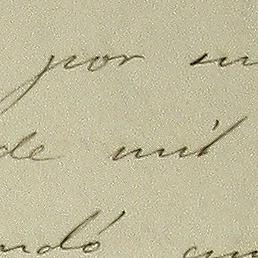 por
de mil
ndó